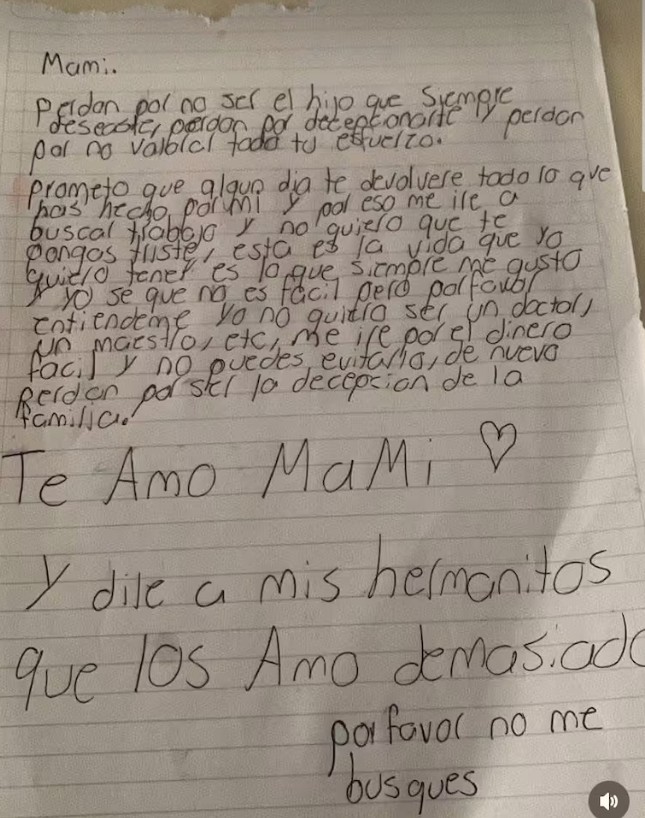 Mami.
Perdon por no ser el hijo que siempre
deseaste, perdon por decepcionarte y perdon
por no valorar todo tu esfuerzo.
Prometo que algun dia te devolvere todo lo que
has hecho por mi y por eso me ire a
buscar trabajo y no quiero que te
pongas triste, esta es la vida que yo
quiero tener es lo que siempre me gusto
y yo se que no es facil pero porfavor
entiendeme yo no quiero ser un doctor,
un maestro, etc, me ire por el dinero
facil y no puedes evitarlo, de nuevo
perdon por ser la decepcion de la
familia.
Te Amo MaMi ♡
y dile a mis hermanitos
que los Amo demasiado
porfavor no me
busques